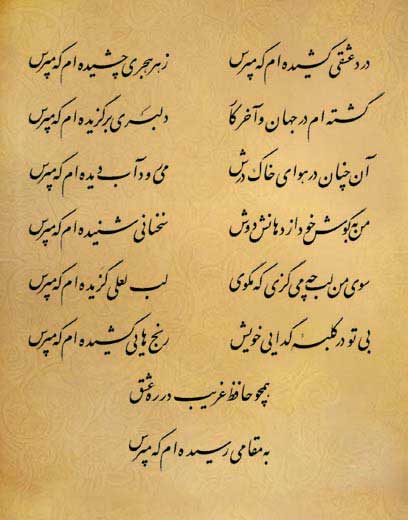 درد عشقی کشیده ام که مپرس زهر هجری چشیده ام که مپرس
گشته ام در جهان و آخر کار دلبری برگزیده ام که مپرس
آن چنان در هوای خاک درش می رود آب دیده ام که مپرس
من به گوش خود از دهانش دوش سخنانی شنیده ام که مپرس
سوی من لب چه می گزی که مگوی لب لعلی گزیده ام که مپرس
بی تو در کلبه گدایی خویش رنج هایی کشیده ام که مپرس
همچو حافظ غریب در ره عشق
به مقامی رسیده ام که مپرس